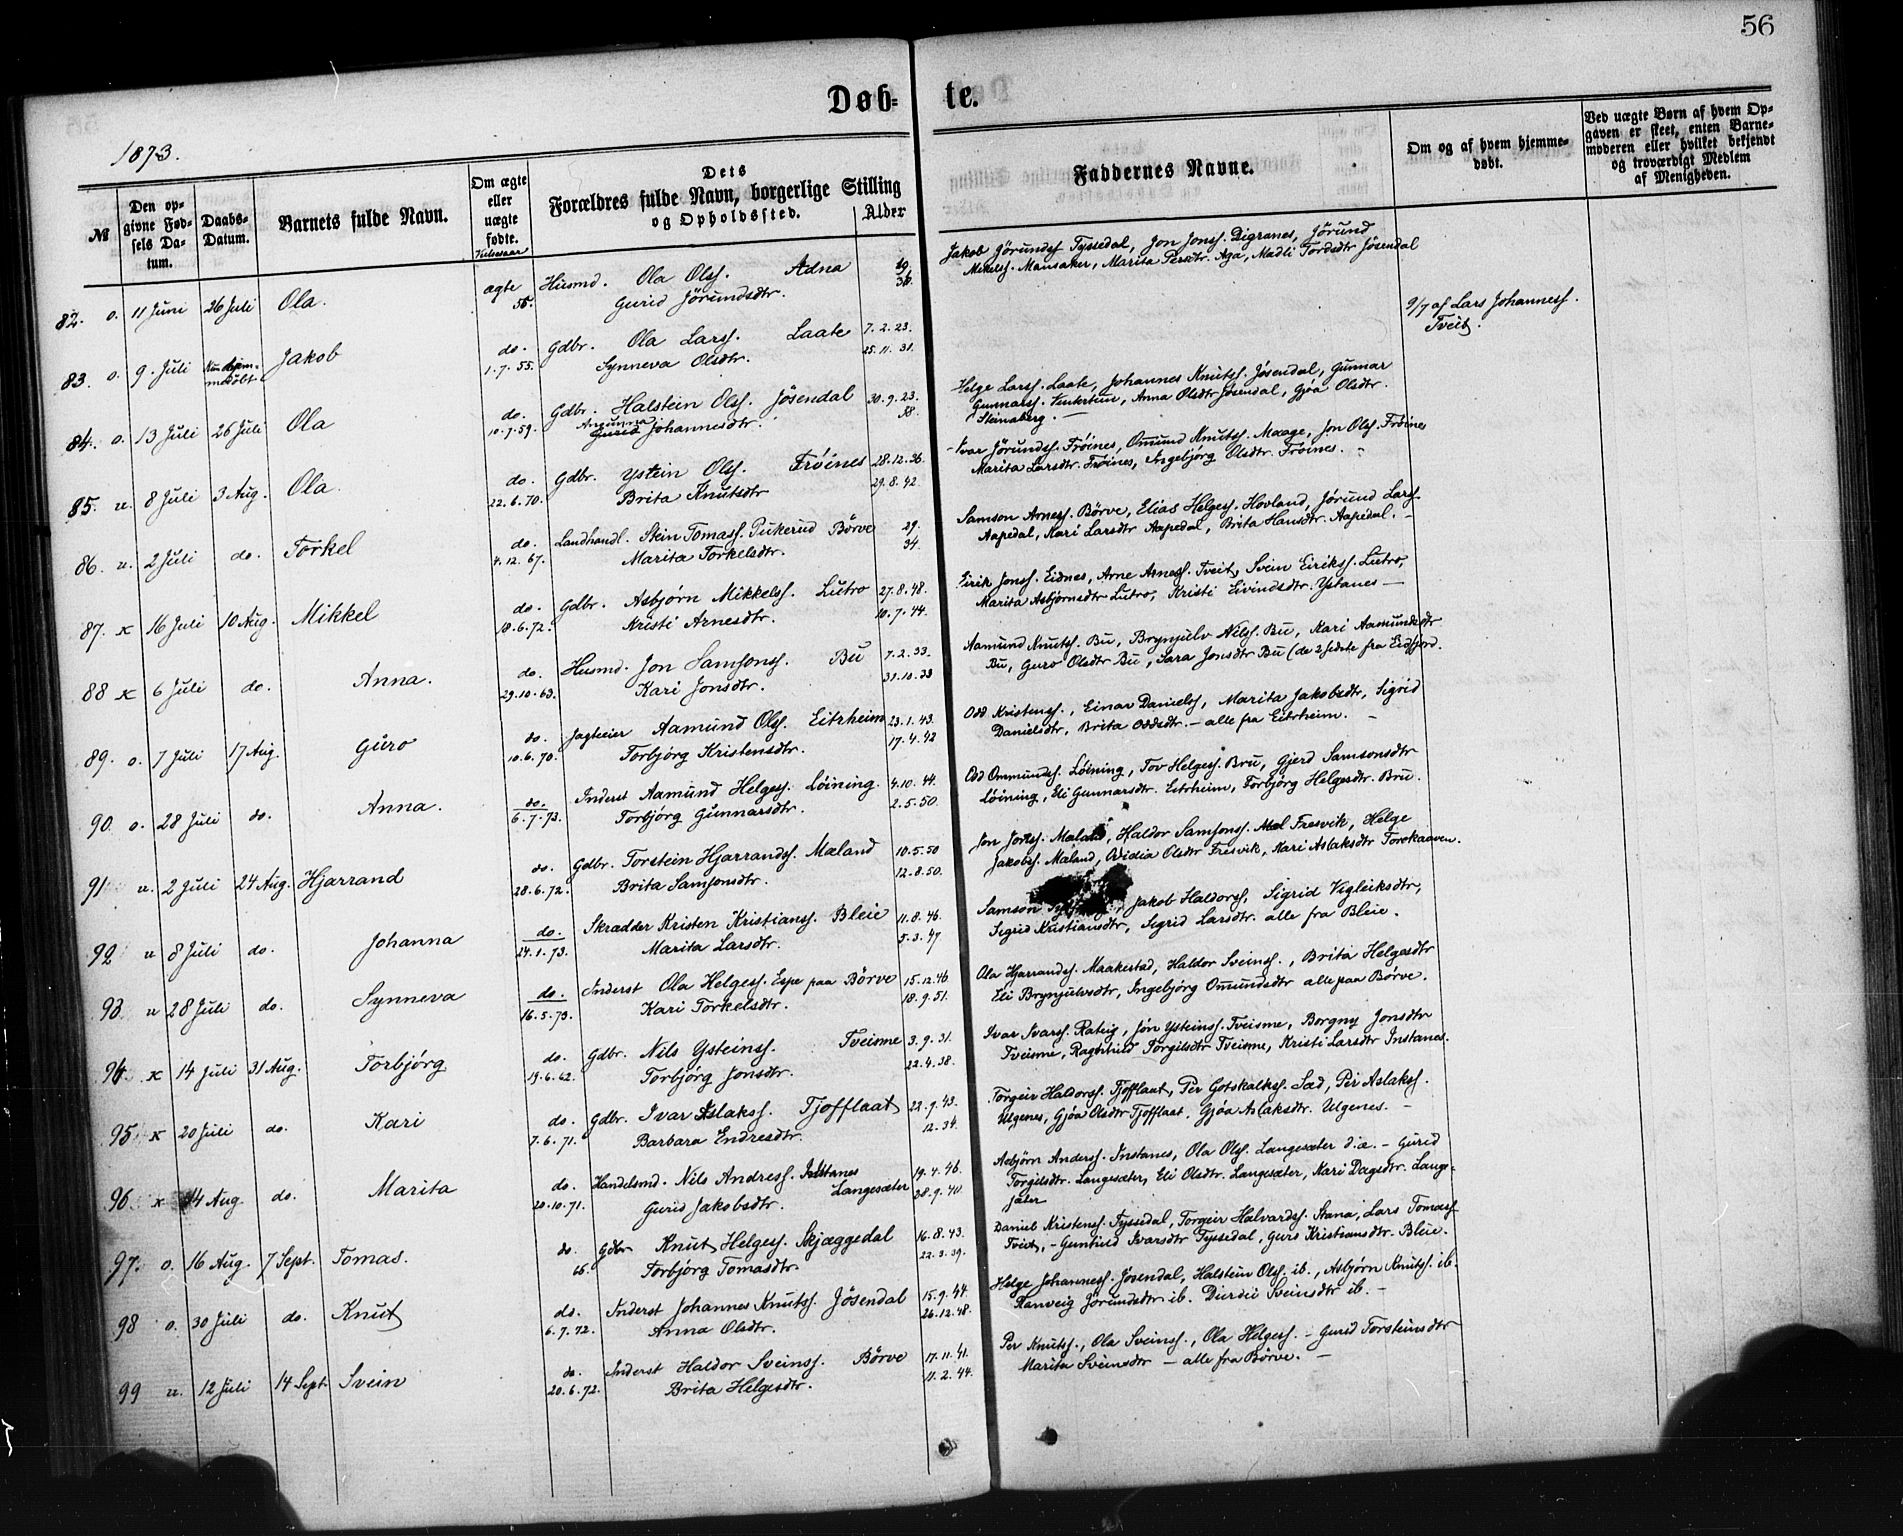 56
Døb-
te.
1873.
№
Den op-
givne Fød-
sels Da-
tum.
Daabs-
Datum.
Barnets fulde Navn.
Om ægte
eller
uægte
fødte.
Vielsesaar
Dets
Forældres fulde Navn, borgerlige Stilling
og Opholdssted.
Alder
Faddernes Navne.
Om og af hvem hjemme-
døbt.
Ved uægte Børn af hvem Op-
gaven er skeet, enten Barne-
moderen eller hvilket bekjendt
og troværdigt Medlem
af Menigheden.
82. o. 11 Juni 26 Juli Ola. ægte Husmd. Ola Olss. Adna
Gurid Jörundsdtr.
Jakob Jörundss Tyssedal, Jon Jonss. Digranes, Jörund
Mikelss. Mansaker, Marita Persdtr. Aga, Madli Tordsdtr Jösendal
83. o. 9. Juli Jakob do. Gdbr. Ola Larss. Laate 7.2.23.
1.7.55. Synneva Olsdtr. 25.11.31.
9/7 af Lars Johanness.
Tveit.
84. o. 13 Juli 26 Juli Ola do. Gdbr. Halstein Olss. Jösendal 30.9.23.
10.7.59. Johannesdtr. 38.
Helge Larss. Laate, Johannes Knutss. Jösendal, Gunnar
Gunnarss. Anna Olsdtr Jösendal, Gjøa Olsdtr.
Steinaberg. —
85. u. 8 Juli 3 Aug. Ola do. Gdbr. Ystein Olss. Fröines 28.12.36.
22.6.70. Brita Knutsdtr 29.8.42.
Ivar Jörundss. Fröines, Omund Knutss. Maage, Jon Olss. Fröines
Marita Larsdtr. Fröines, Ingebjörg Olsdtr. Fröines.
86. u. 2 Juli do. Torkel do. Landhandl. Stein Tomass. Börve 29.
4.12.67. Marita Torkelsdtr. 34.
Samson Arness. Börve, Elias Helgess. Hovland, Jörund Larss.
Aapedal, Kari Larsdtr Aapedal, Brita Hansdtr. Aapedal. —
87. x 16 Juli 10 Aug. Mikkel do. Gdbr. Asbjørn Mikkelss. Lutro 27.8.48.
18.6.72. Kristi Arnesdtr. 10.7.44.
Eirik Jonss. Eidnes, Arne Arness. Tveit, Svein Eirikss. Lutro,
Marita Asbjørnsdtr Lutro, Kristi Eivindsdtr. Ystanes —
88 x 6 Juli do. Anna. do. Husmd. Jon Samsonss. Bu 7.2.33.
29.10.63. Kari Jonsdtr. 31.10.33
Aamund Knutss. Bu, Brynjulv Nilss. Bu, Kari Aamundsdtr
Bu, Guro Olsdtr Bu, Sara Jonsdtr Bu (de 2 sidste fra Eidfjord.
89. o. 7 Juli 17 Aug. Guro do. Jagteeier Aamund Olss. Eitrheim 23.1.43.
10.6.70. Torbjörg Kristensdtr. 17.4.42
Odd Kristenss., Einar Danielss, Marita Jakobsdtr, Sigrid
Danielsdtr, Brita Oddsdtr. – alle fra Eitrheim. —
90 o. 28 Juli do. Anna. do. Inderst Aamund Helgess. Löining. 4.10.44.
6.7.73. Torbjörg Gunnarsdtr. 2.5.50.
Odd Ommundss. Löining, Tov Helgess. Bru, Gjerd Samsonsdtr
Löining, Eli Gunnarsdtr. Eitrheim, Torbjörg Helgesdtr. Bru.
91 u. 2 Juli 24 Aug. Hjarrand do. Gdbr. Torstein Hjarrandss. Mæland 10.5.50
28.6.72. Brita Samsonsdtr. 12.8.50.
Jon Jonss. Mæland, Haldor Samsonss. Fresvik, Helge
Jakobss. Mæland, Olsdtr Fresvik, Kari Aslaksdtr
92 u 8 Juli do. Johanna do. Skrædder Kristen Kristianss. Bleie 11.8.46.
24.1.73. Marita Larsdtr. 5.3.47.
Samson Jakob Haldorss, Sigrid Vigleiksdtr,
Sigrid Kristiansdtr, Sigrid Larsdtr. alle fra Bleie.
93 u 28 Juli do. Synneva do. Inderst Ola Helgess. Espe paa Börve 15.12.46
16.5.73. Kari Torkelsdtr. 18.9.51.
Ola Hjarrandss. Maakestad, Haldor Sveinss., Brita Helgesdtr
Eli Brynjulvsdtr, Ingebjörg Omundsdtr alle paa Börve.
94. x 14 Juli 31 Aug. Torbjörg do. Gdbr. Nils Ysteinss. Tveisme 3.9.31.
19.6.62. Torbjörg Jonsdtr. 22.4.38.
Ivar Ivarss. Jon Ysteinss. Tveisme, Borgny Jonsdtr
Tveisme, Ragnhild Torgilsdtr Tveisme, Kristi Larsdtr Instanes.
95 x 20 Juli do. Kari do. Gdbr. Ivar Aslakss. Tjofflaat 22.9.43.
7.6.71. Barbara Endresdtr. 12.34.
Torgeir Haldorss. Tjofflaat, Per Gotskalkss. Sæd, Per Aslakss.
Ulgenes, Gjøa Olsdtr Tjofflaat, Gjøa Aslaksdtr. Ulgenes. —
96 x 14 Aug. do. Marita do. Handelsmd. Nils Andress. Instanes 19.4.46.
Langesæter
20.10.71. Gurid Jakobsdtr. 28.9.40.
Asbjörn Anderss. Instanes, Ola Olss. Langesæter d.æ. – Gurid
Torgilsdtr. Langesæter, Eli Olsdtr. Langesæter, Kari Dagsdtr. Lange-
sæter
97. o. 16 Aug. 7 Sept. Tomas. do. Gdbr Knut Helgess. Skjæggedal 16.8.43.
66. Torbjörg Tomasdtr. 22.3.39.
Daniel Kristenss. Tyssedal, Torgeir Halvardss. Stana, Lars Tomass
Tveit, – Gunhild Ivarsdtr Tyssedal, Guro Kristiansdtr. Bleie.
98 o. 30 Juli do. Knut do. Inderst Johannes Knutss. Jösendal 15.9.44.
6.7.72. Anna Olsdtr. 26.12.48.
Helge Johanness. Jösendal, Halstein Olss. ib., Asbjørn Knutss. ib.
Ranveig Jörundsdtr ib. Sveinsdtr ib. —
99 u. 12 Juli 14 Sept. Svein do. Inderst Haldor Sveinss. Börve 17.11.41.
20.6.72. Brita Helgesdtr. 11.2.44.
Per Knutss., Ola Sveinss., Ola Helgess. – Gurid Torsteinsdtr
Marita Sveinsdtr – alle fra Börve. —